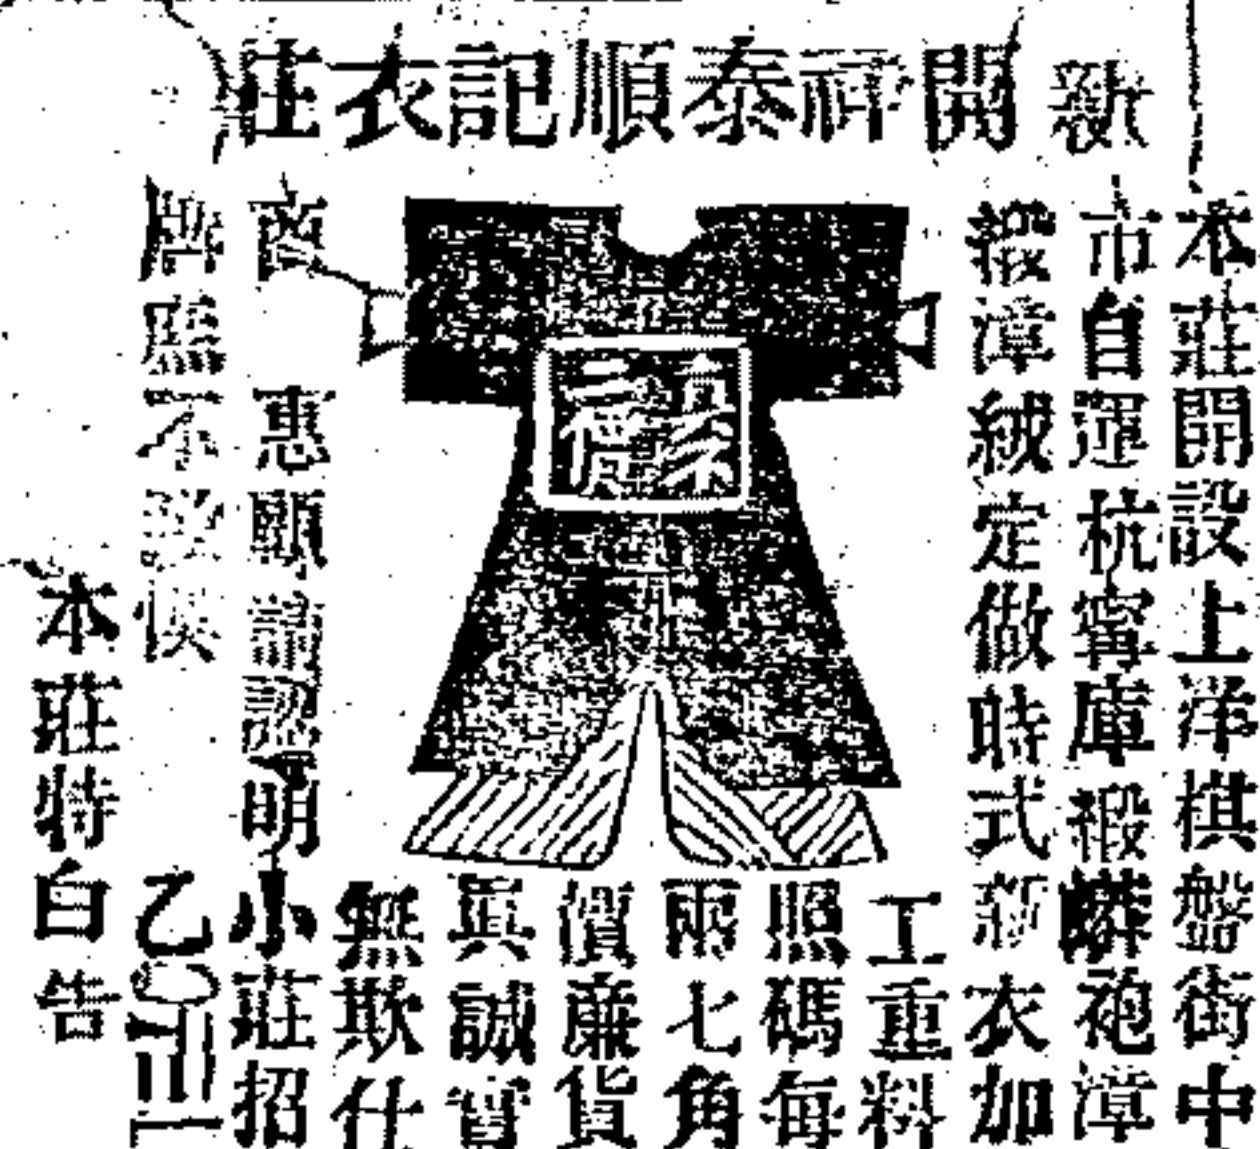 新開祥泰順記衣莊
本莊開設上洋棋盤街中
市自運杭寧庫緞蟒袍漳
緞漳絨定做時式新衣加
工重料
照碼每
兩七角
價廉貨
眞誠實
無欺仕
商　惠顧請認明小莊招
牌庶不致悞
本莊特白告